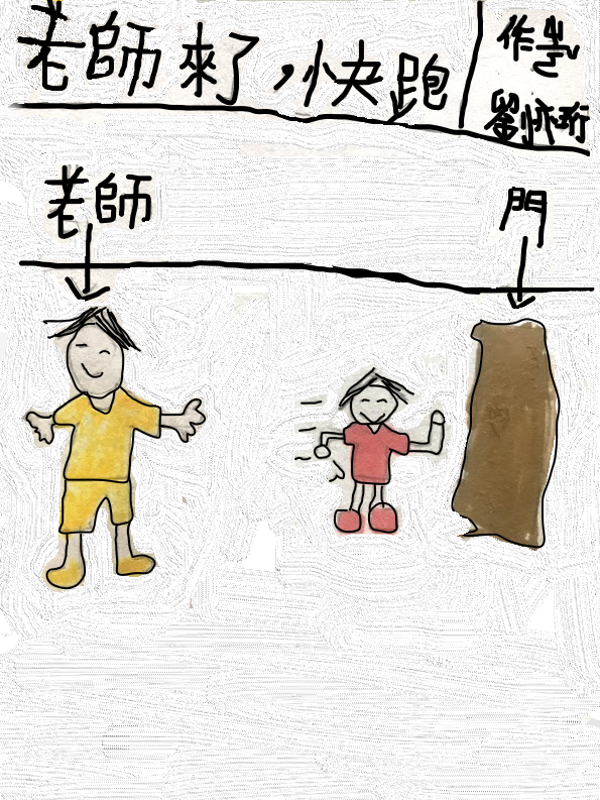 老師來了,快跑
作者
劉
老師
門